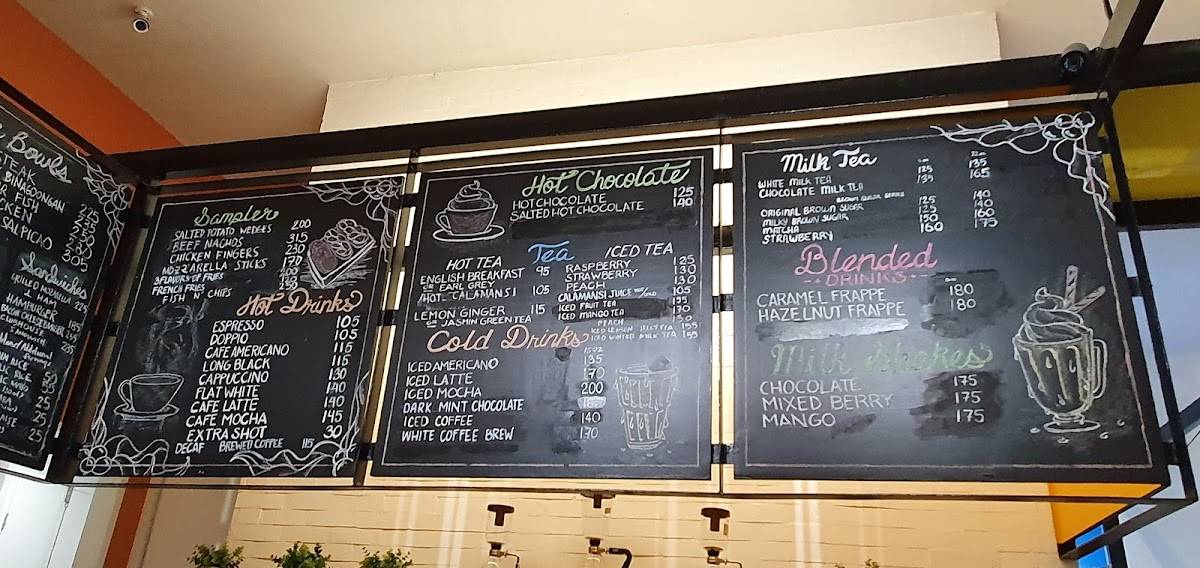 Bowls
BINAGOONGAN
FISH
SALPICAO
305
Sandwiches
GRILLED MOZZARELLA
HAM
HAMBURGER
BACON CHEESEBURGER
CLUBHOUSE
25
25
25
Sampler
SALTED POTATO WEDGES 200
BEEF NACHOS 315
CHICKEN FINGERS 230
MOZZARELLA STICKS 170
3 FLAVORED FRIES
FRENCH FRIES
FISH N' CHIPS
Hot Drinks
ESPRESSO 105
DOPPIO 105
CAFE AMERICANO 115
LONG BLACK 115
CAPPUCCINO 130
FLAT WHITE 140
CAFE LATTE 140
CAFE MOCHA 145
EXTRA SHOT 30
DECAF BREWED COFFEE 115
Hot Chocolate
HOT CHOCOLATE 125
SALTED HOT CHOCOLATE 140
Tea
HOT TEA
ENGLISH BREAKFAST 95
OR EARL GREY
HOT CALAMANSI 105
LEMON GINGER 115
OR JASMIN GREEN TEA
ICED TEA
RASPBERRY 125
STRAWBERRY 130
PEACH 130
CALAMANSI JUICE HOT/COLD 105
ICED FRUIT TEA
ICED MANGO TEA 170
PEACH 150
ICED LEMON JELLY TEA 155
ICED WINTER MILK TEA 155
Cold Drinks
ICED AMERICANO 135
ICED LATTE 170
ICED MOCHA 200
DARK MINT CHOCOLATE
ICED COFFEE 140
WHITE COFFEE BREW 170
Milk Tea
WHITE MILK TEA 125 135
CHOCOLATE MILK TEA 135 165
BROWN SUGAR SERIES
ORIGINAL BROWN SUGAR 125 140
MILKY BROWN SUGAR 125 140
MATCHA 150 160
STRAWBERRY 160 175
Blended
DRINKS
CARAMEL FRAPPE 180
HAZELNUT FRAPPE 180
Milk Shakes
CHOCOLATE 175
MIXED BERRY 175
MANGO 175